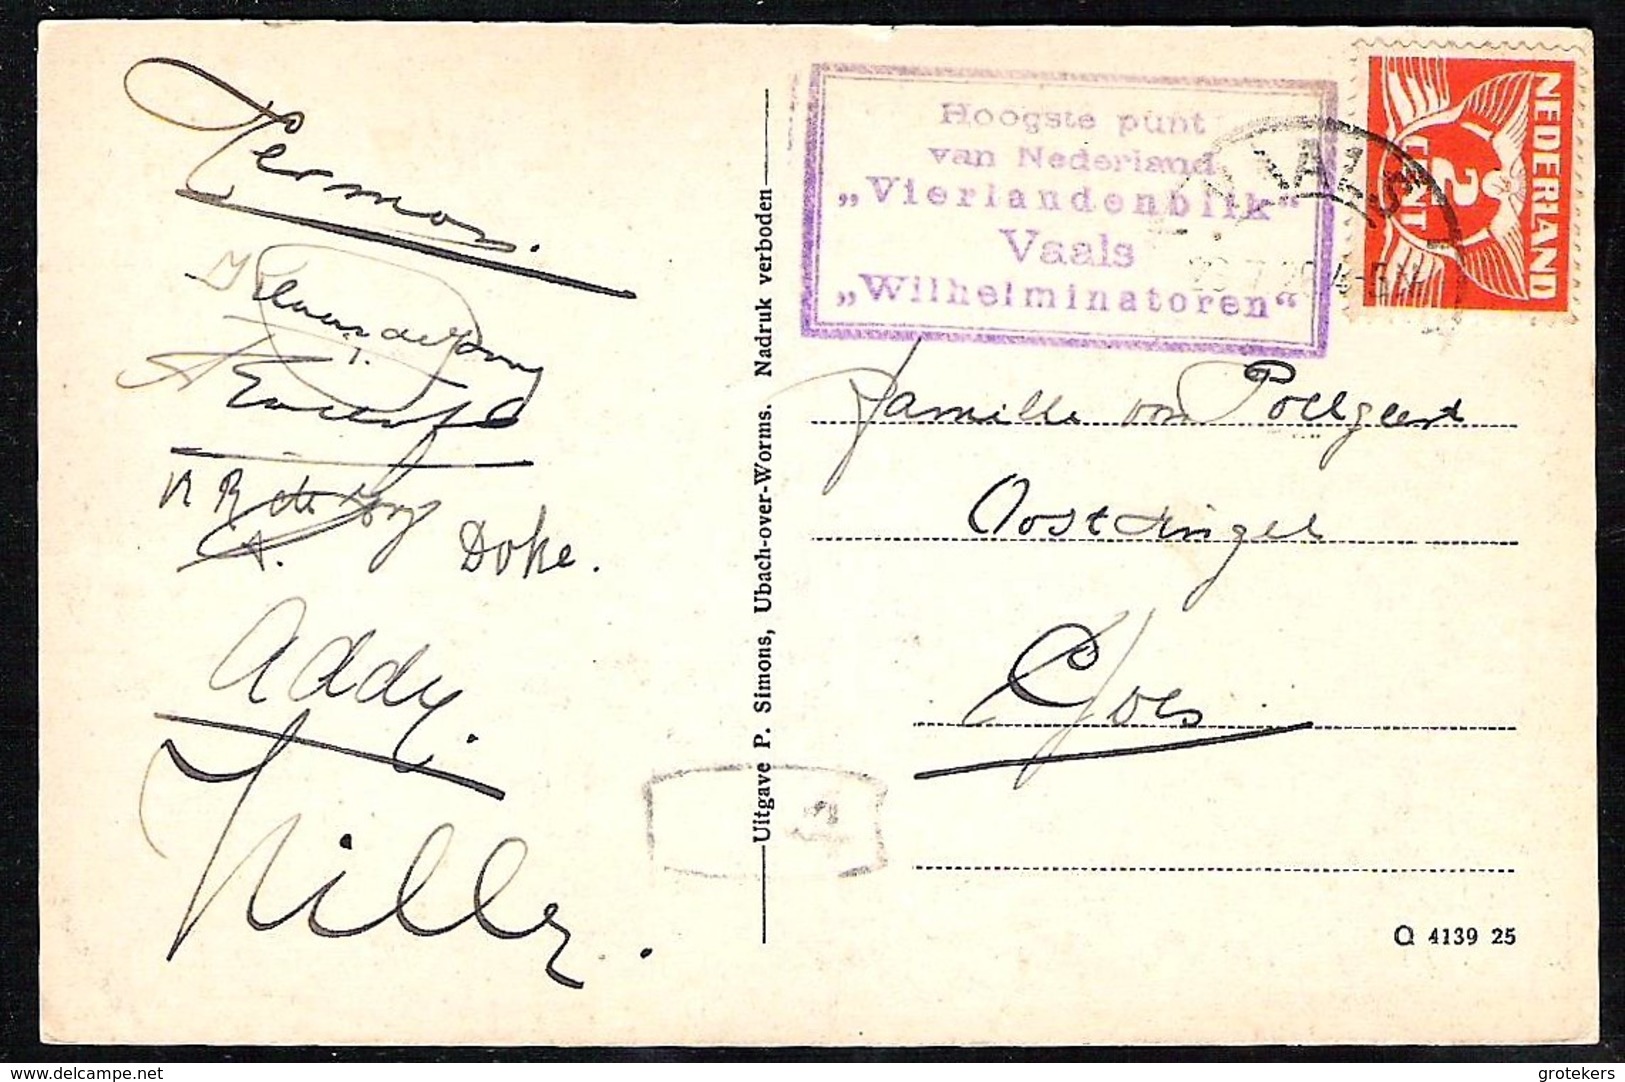 Herman.
A
de Jong
Doke.
Addy.
Willy.
Uitgave P. Simons, Ubach-over-Worms. Nadruk verboden
Hoogste punt
van Nederland
„Vierlandenblik“
Vaals
„Wilhelminatoren“
VAALS
NEDERLAND
2
CENT
Familie van Poelgeest
Oostsingel
Goes.
2
Q 4139 25
delcampe.net
grotekers